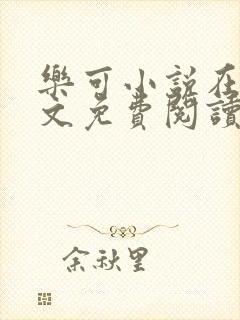 樂可小說在
文免費閱讀
余秋里